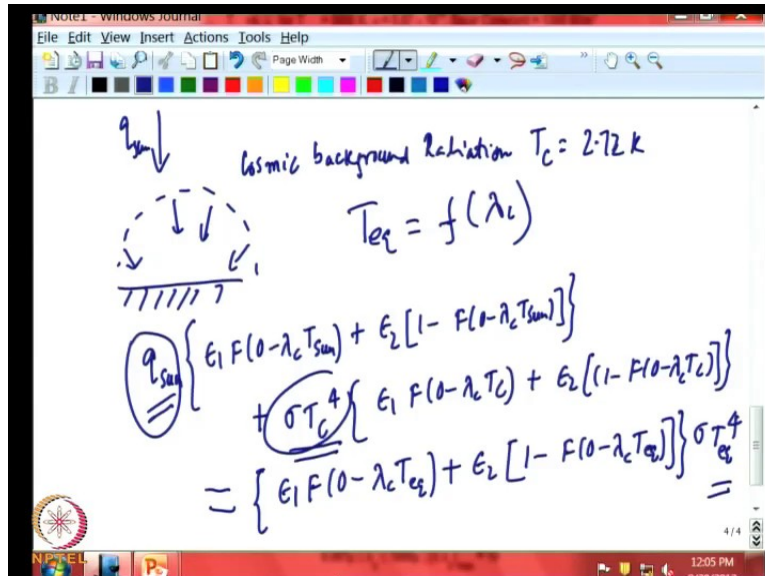 Note1 - Windows Journal
File Edit View Insert Actions Tools Help
Page Width
B I
q_sun
Cosmic background Radiation T_c = 2.72 K
T_eq = f(λ_c)
q_sun { ε_1 F(0-λ_c T_sun) + ε_2 [1 - F(0-λ_c T_sun)] }
+ σT_c^4 { ε_1 F(0-λ_c T_c) + ε_2 [(1 - F(0-λ_c T_c)] }
= { ε_1 F(0-λ_c T_eq) + ε_2 [1 - F(0-λ_c T_eq)] } σ T_eq^4
4/4
NPTEL
12:05 PM